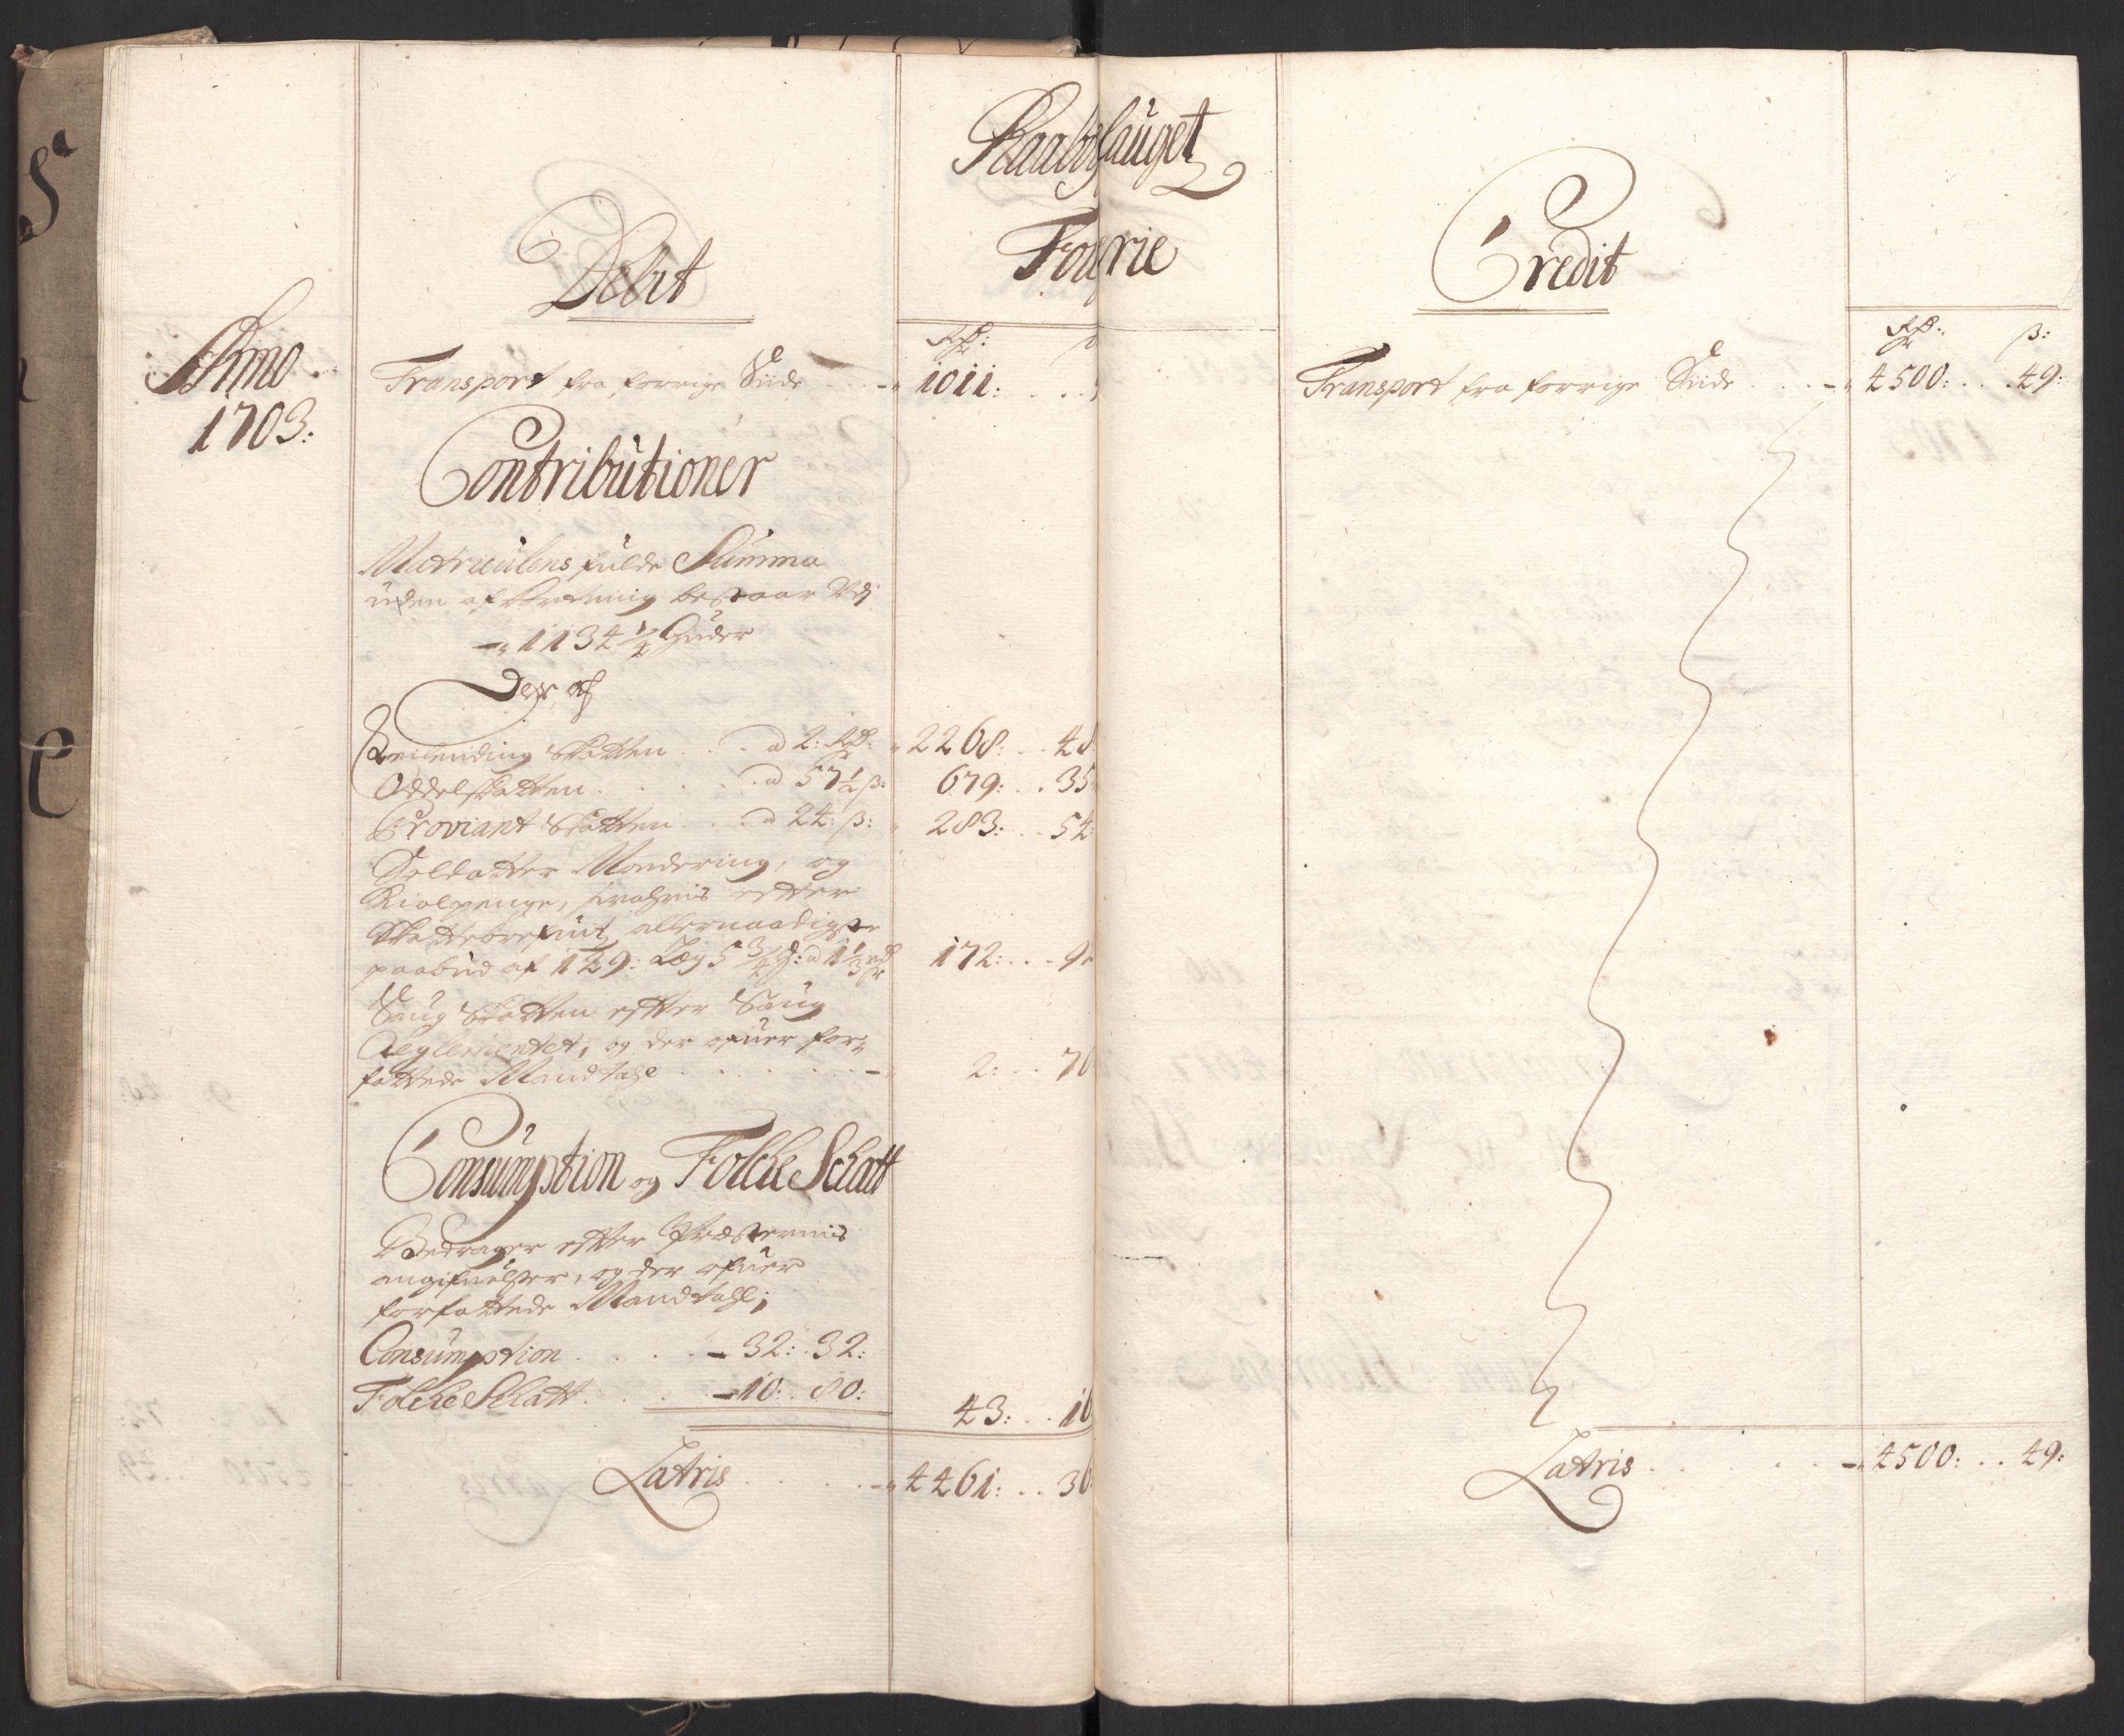 Raabøglauget
Fougerie
Debit
Anno
1703:
Rdr:
Transport fra forrige Siide . . . 1011:
Contributioner
Matriculens fulde Summa
uden afkortning bestaar udj
1134 1/4 Huder
Der af
Leilending Skatten . . . a 2: Rd: 2268: . . 48
Oddelskatten . . . . . a 57 1/2 β: 679: . . 35
Proviant Skatten . . . a 24: β: 283: . . 54:
Soldatter Mondering, og
Kiolpenge, efter
Skattebrefuit allernaadigste
paabud af 129: Læg 5 3/4 H: a 1 1/3 rdr 172: . . 9
Saug Skatten efter Saug
Reglementet, og der ofuer for,
fattede Mandtahl . . . . . 2: . . 70
Consumption og Folche Schatt
Bedrager efter Præsternis
angifuelser, og der ofuer
forfattede Mandtahl;
Consumption . . . . 32: 32:
Folche Schatt . . . . 10: 80:
43: . . 16
Latris . . . . . 4461: . . 36
Credit
Rdr: β:
Transport fra forrige Siide . . . 4500: . . 49:
Latris . . . . . 4500: . . 49: